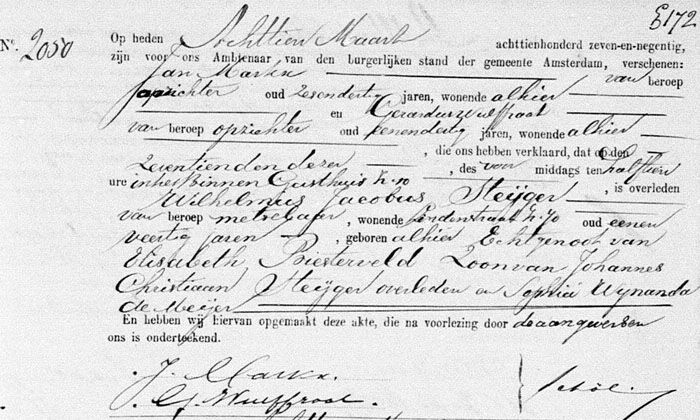 E172
Nº. 2050
Op heden Achttien Maart achttienhonderd zeven-en-negentig,
zijn voor ons Ambtenaar van den burgerlijken stand der gemeente Amsterdam, verschenen:
Jan Markx van beroep
opzichter oud zesendertig jaren, wonende alhier
en Gerardus Wulffraat
van beroep opzichter oud eenendertig jaren, wonende alhier
, die ons hebben verklaard, dat op den
zeventienden dezer , des voor middags ten half tien
ure in het Binnen Gasthuis N. 10
Wilhelmus Jacobus Steijger , is overleden
van beroep metselaar , wonende Lindenstraat N. 70 oud eenen
veertig jaren , geboren alhier Echtgenoot van
Elisabeth Biesterveld Zoon van Johannes
Christiaan Steijger overleden en Sophia Wynanda
de Meijer
En hebben wij hiervan opgemaakt deze akte, die na voorlezing door de aangevers en
ons is onderteekend.
J. Markx.